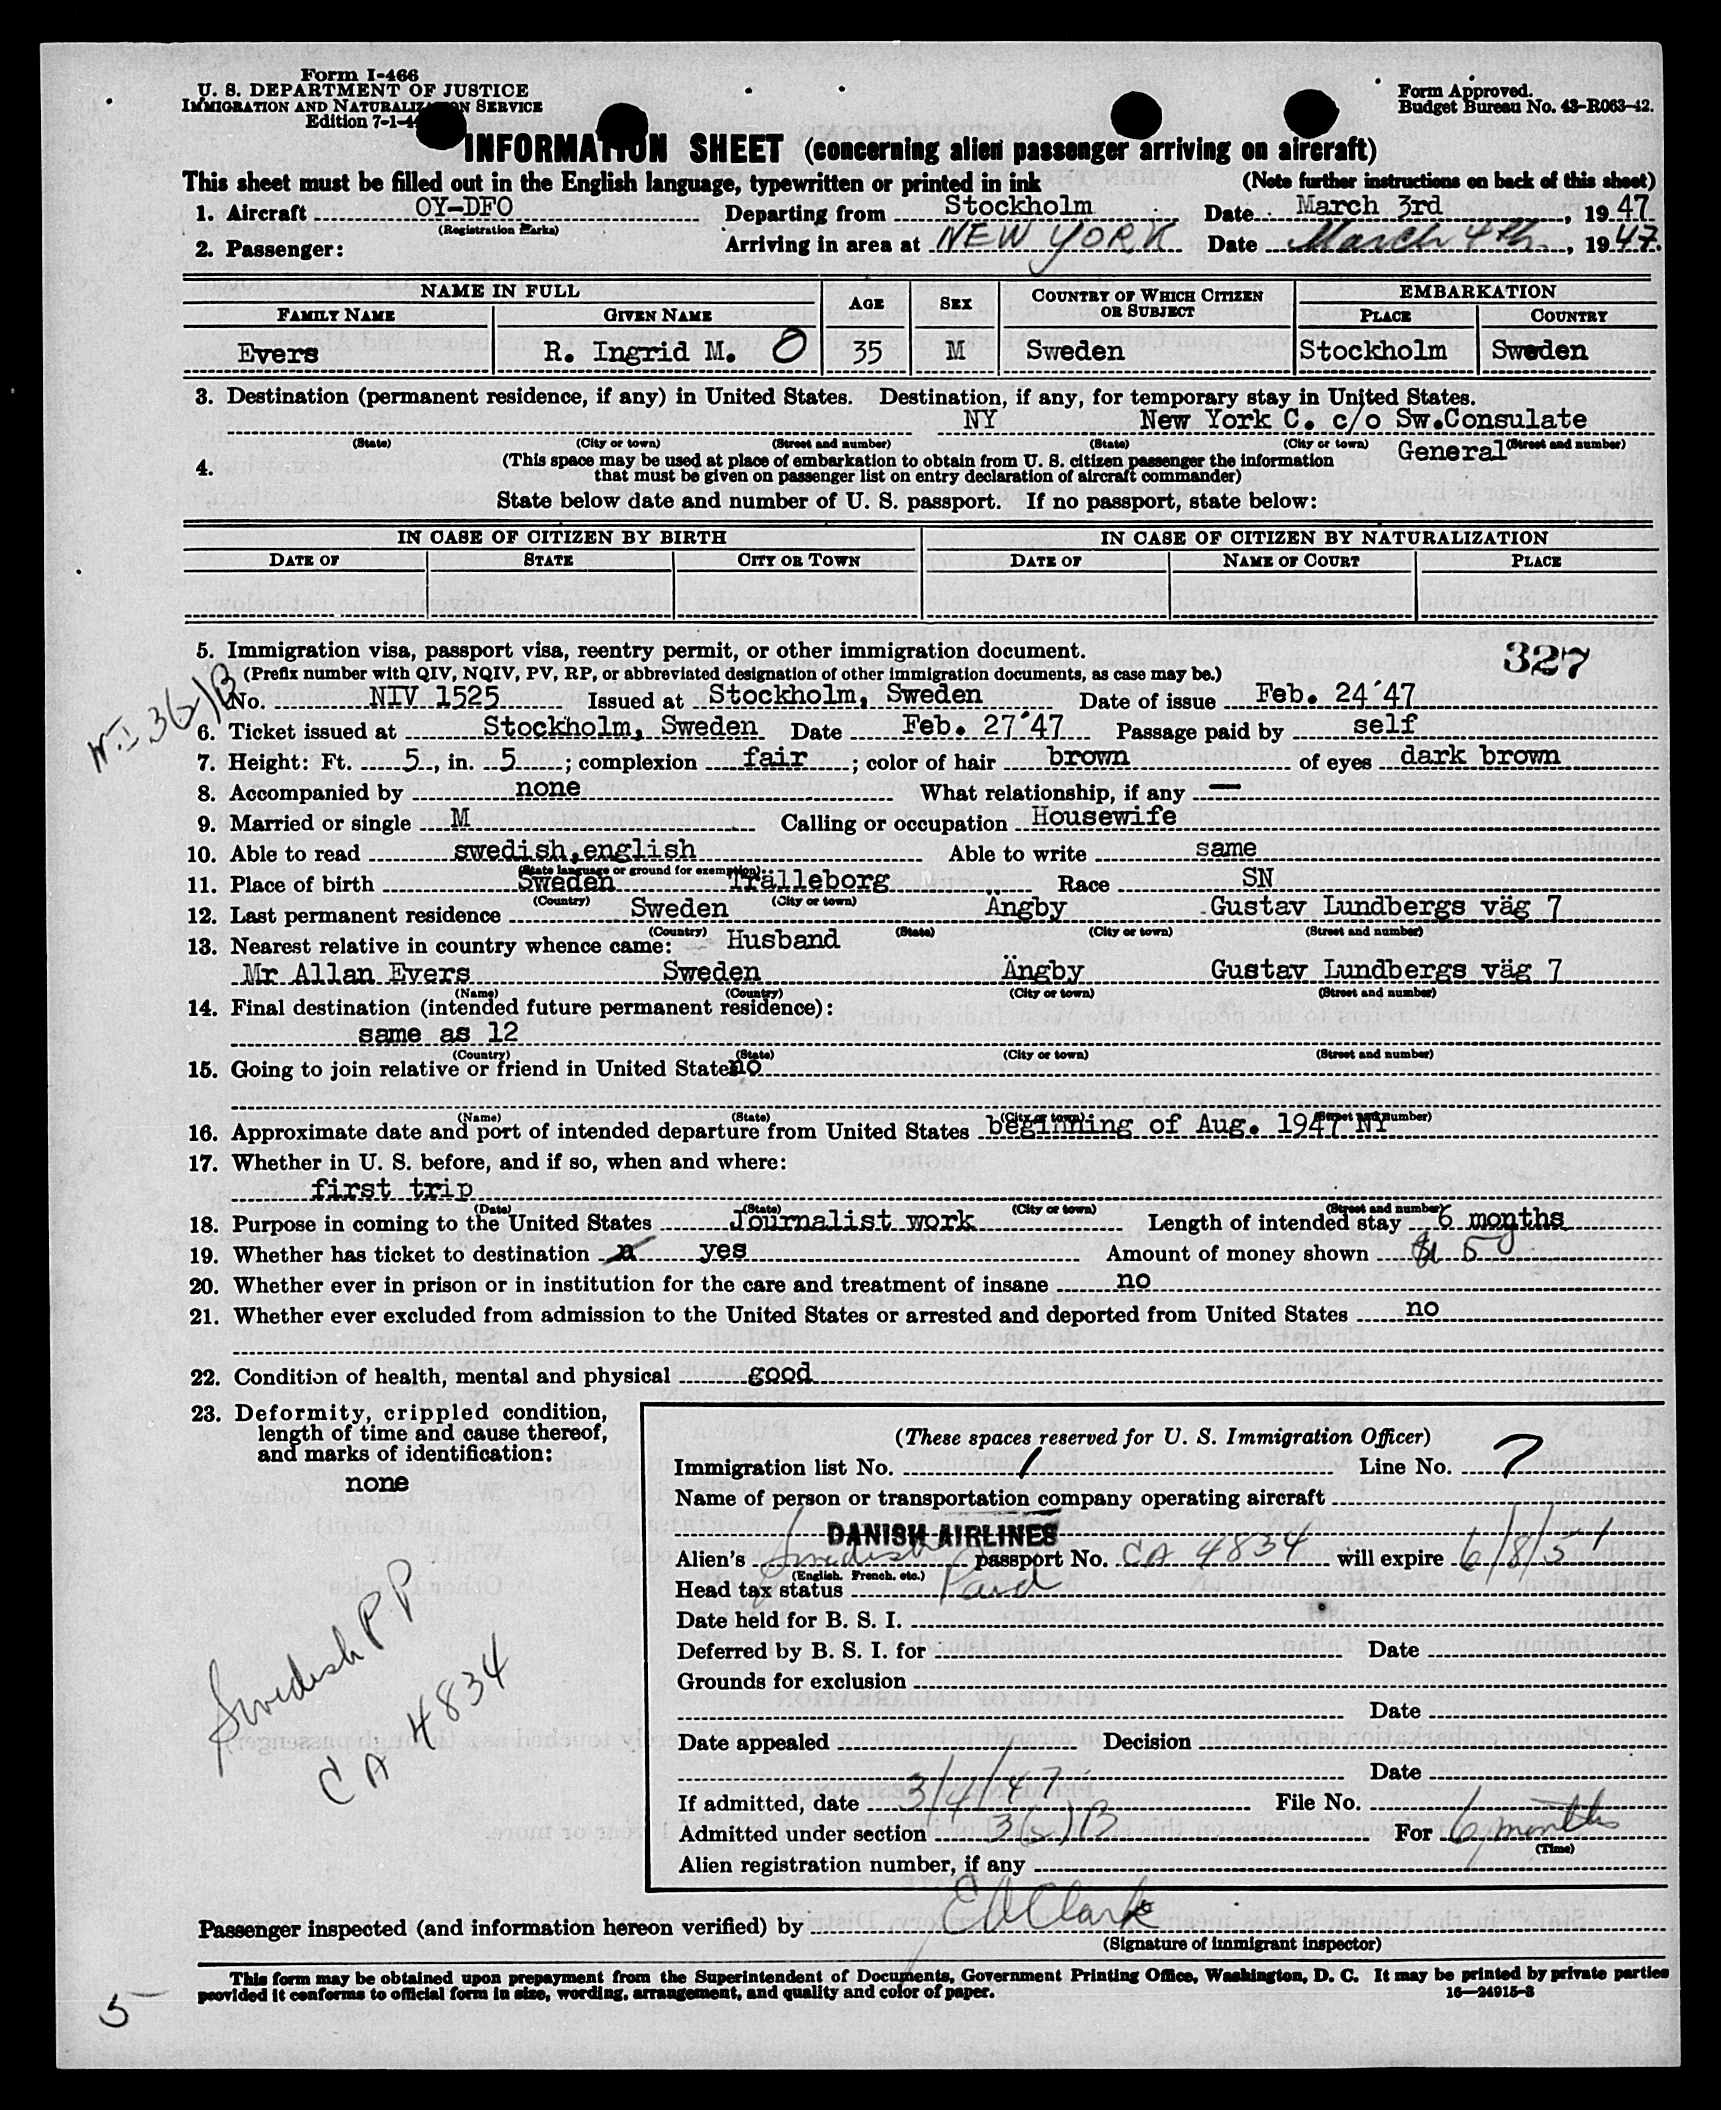 Form I-466
U. S. DEPARTMENT OF JUSTICE
IMMIGRATION AND NATURALIZATION SERVICE
Edition 7-1-4
Form Approved.
Budget Bureau No. 43-R063-42.
INFORMATION SHEET (concerning alien passenger arriving on aircraft)
This sheet must be filled out in the English language, typewritten or printed in ink (Note further instructions on back of this sheet)
1. Aircraft OY-DFO Departing from Stockholm Date March 3rd, 1947
(Registration Marks)
2. Passenger: Arriving in area at NEW YORK Date March 4th, 1947.
NAME IN FULL AGE SEX COUNTRY OF WHICH CITIZEN OR SUBJECT EMBARKATION
FAMILY NAME GIVEN NAME PLACE COUNTRY
Evers R. Ingrid M. O 35 M Sweden Stockholm Sweden
3. Destination (permanent residence, if any) in United States. Destination, if any, for temporary stay in United States.
NY New York C. c/o Sw.Consulate
(State) (City or town) (Street and number) (State) (City or town) General (Street and number)
4. (This space may be used at place of embarkation to obtain from U. S. citizen passenger the information
that must be given on passenger list on entry declaration of aircraft commander)
State below date and number of U. S. passport. If no passport, state below:
IN CASE OF CITIZEN BY BIRTH IN CASE OF CITIZEN BY NATURALIZATION
DATE OF STATE CITY OR TOWN DATE OF NAME OF COURT PLACE
5. Immigration visa, passport visa, reentry permit, or other immigration document. 327
(Prefix number with QIV, NQIV, PV, RP, or abbreviated designation of other immigration documents, as case may be.)
No. NIV 1525 Issued at Stockholm, Sweden Date of issue Feb. 24´47
6. Ticket issued at Stockholm, Sweden Date Feb. 27´47 Passage paid by self
7. Height: Ft. 5, in. 5; complexion fair; color of hair brown of eyes dark brown
8. Accompanied by none What relationship, if any —
9. Married or single M Calling or occupation Housewife
10. Able to read swedish,english Able to write same
(State language or ground for exemption)
11. Place of birth Sweden Trälleborg Race SN
(Country) (City or town)
12. Last permanent residence Sweden Ängby Gustav Lundbergs väg 7
(Country) (State) (City or town) (Street and number)
13. Nearest relative in country whence came: Husband
Mr Allan Evers Sweden Ängby Gustav Lundbergs väg 7
(Name) (Country) (City or town) (Street and number)
14. Final destination (intended future permanent residence):
same as 12
(Country) (State) (City or town) (Street and number)
15. Going to join relative or friend in United States no
(Name) (State) (City or town) (Street and number)
16. Approximate date and port of intended departure from United States beginning of Aug. 1947 NY
17. Whether in U. S. before, and if so, when and where:
first trip
(Date) (State) (City or town) (Street and number)
18. Purpose in coming to the United States Journalist work Length of intended stay 6 months
19. Whether has ticket to destination n yes Amount of money shown $ 50
20. Whether ever in prison or in institution for the care and treatment of insane no
21. Whether ever excluded from admission to the United States or arrested and deported from United States no
22. Condition of health, mental and physical good
23. Deformity, crippled condition,
length of time and cause thereof,
and marks of identification:
none
(These spaces reserved for U. S. Immigration Officer)
Immigration list No. 1 Line No. 7
Name of person or transportation company operating aircraft
DANISH AIRLINES
Alien's Swedish passport No. CA 4834 will expire 6/8/51
(English. French. etc.)
Head tax status Paid
Date held for B. S. I.
Deferred by B. S. I. for Date
Grounds for exclusion
Date
Date appealed Decision
Date
If admitted, date 3/4/47 File No.
Admitted under section 3(2)B For 6 months
(Time)
Alien registration number, if any
Swedish PP
CA 4834
Passenger inspected (and information hereon verified) by EA Clark
(Signature of immigrant inspector)
This form may be obtained upon prepayment from the Superintendent of Documents, Government Printing Office, Washington, D. C. It may be printed by private parties
provided it conforms to official form in size, wording, arrangement, and quality and color of paper. 16—24915-3
5